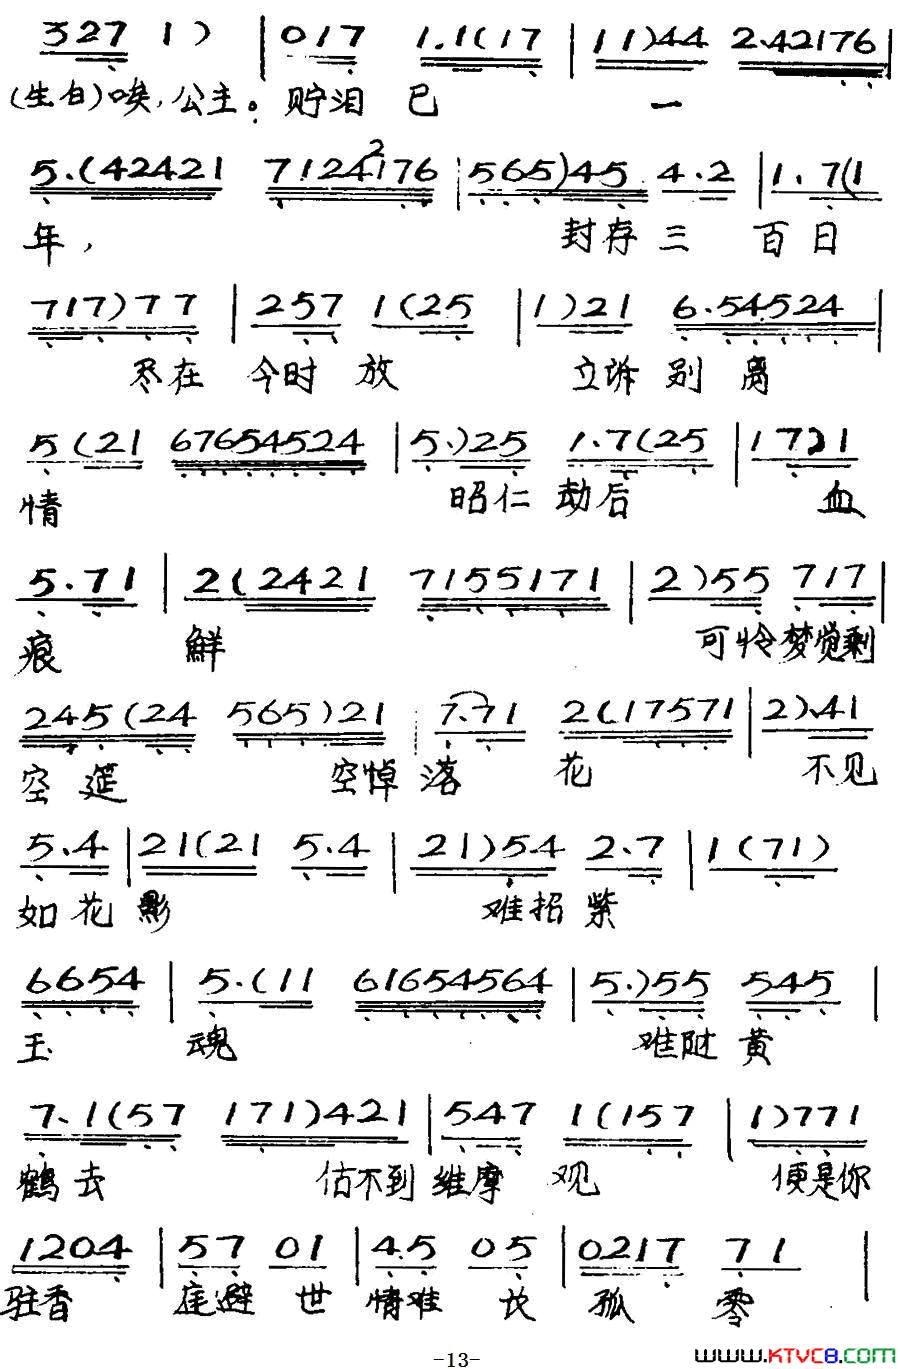 327 1 ) | 017 1.1(17 | 11)44 2.42176 |
(生白)唉,公主。贮泪已一
5.(42421 7124176 2 | 565)45 4.2 | 1.7(1
年, 封存三百日
717)77 | 257 1(25 | 1)21 6.54524 |
尽在 今时放 立诉别离
5(21 67654524 | 5.)25 1.7(25 | 1721
情 昭仁劫后 血
5.71 | 2(2421 7155171 | 2)55 717 |
痕 鲜 可怜梦觉剩
245(24 565)21 | 7.71 2(.17571 | 2).41
空筵 空悼落 花 不见
5.4 | 21(21 5.4 | 21)54 2.7 | 1(71)
如花影 难招紫
6654 | 5.(11 61654564 | 5.)55 545 |
玉 魂 难随黄
7.1(57 171)421 | 547 1(157 | 1)771
鹤去 估不到维摩观 便是你
1204 | 57 01 | 4.5 05 | 0217 71 |
驻香 庭避世情难 孤零
-13-
www.KTVC8.COM